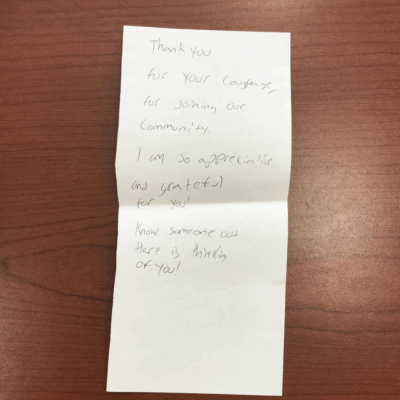 Thank you
for your Courage,
for joining our
Community.
I am so appreciative
and grateful
for you!
Know someone out
there is thinking
of you!